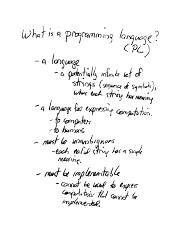 What is a programming language?
("PL")
- a language
- a potentially infinite set of
strings (sequence of symbols),
where each string has meaning
- a language for expressing computation
- to computers
- to humans
- must be unambiguous
- each valid string has a single
meaning.
- must be implementable
- cannot be used to express
computation that cannot be
implemented.